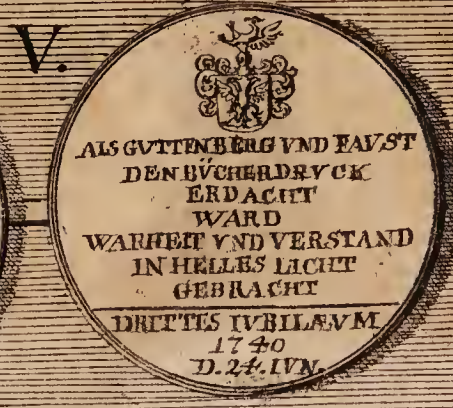 V.
ALS GVTTENBERG VND FAVST
DEN BÜCHERDRVCK
ERDACHT
WARD
WARHEIT VND VERSTAND
IN HELLES LICHT
GEBRACHT
DRITTES IVBILÆVM
1740
D. 24. IVN.